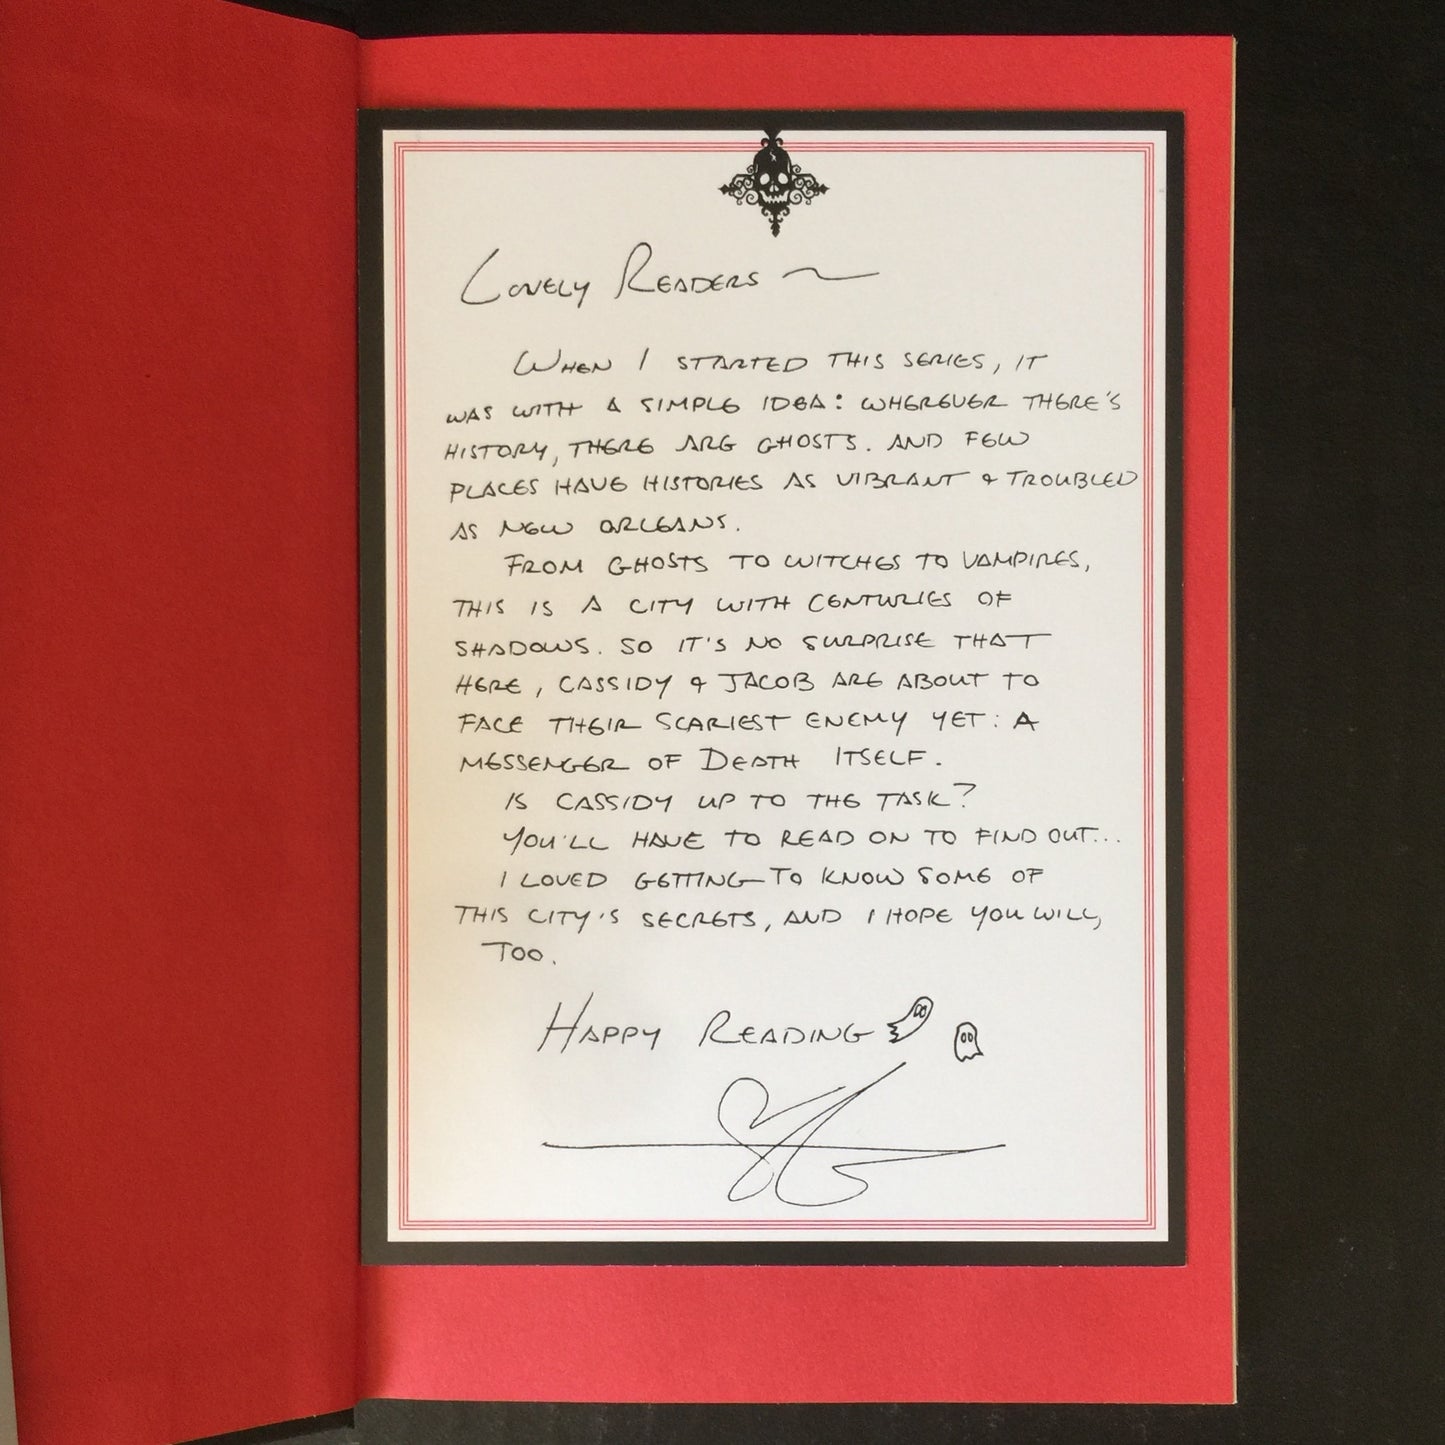 Lovely Readers ~
When I started this series, it
was with a simple idea: wherever there's
history, there are ghosts. And few
places have histories as vibrant & troubled
as New Orleans.
From ghosts to witches to vampires,
this is a city with centuries of
shadows. So it's no surprise that
here, Cassidy & Jacob are about to
face their scariest enemy yet: a
messenger of Death itself.
Is Cassidy up to the task?
You'll have to read on to find out...
I loved getting to know some of
this city's secrets, and I hope you will,
too.
Happy Reading